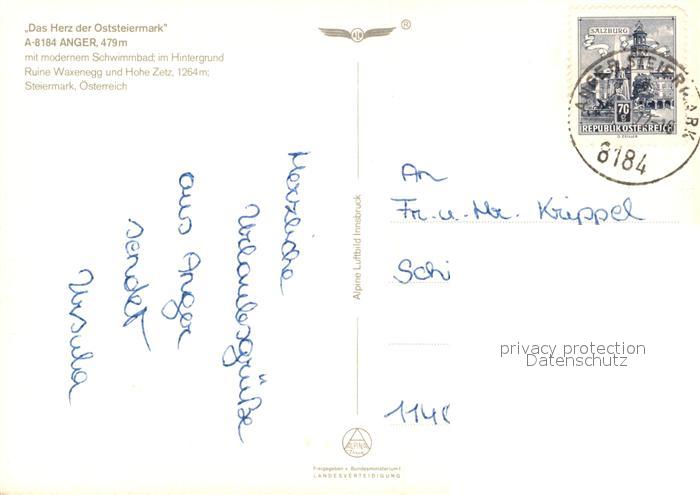 „Das Herz der Oststeiermark"
A-8184 ANGER, 479m
mit modernem Schwimmbad; im Hintergrund
Ruine Waxenegg und Hohe Zetz, 1264m;
Steiermark, Österreich
®
SALZBURG
70 g
REPUBLIK ÖSTERREICH
ANGER, STEIERMARK
8184
Herzliche
Urlaubsgrüße
aus Anger
sendet
Ursula
Alpine Luftbild Innsbruck
An
Fr. u. Hr. Krippel
Schi
1140
privacy protection
Datenschutz
ALPINE
Freigegeben v. Bundesministerium f.
LANDESVERTEIDIGUNG